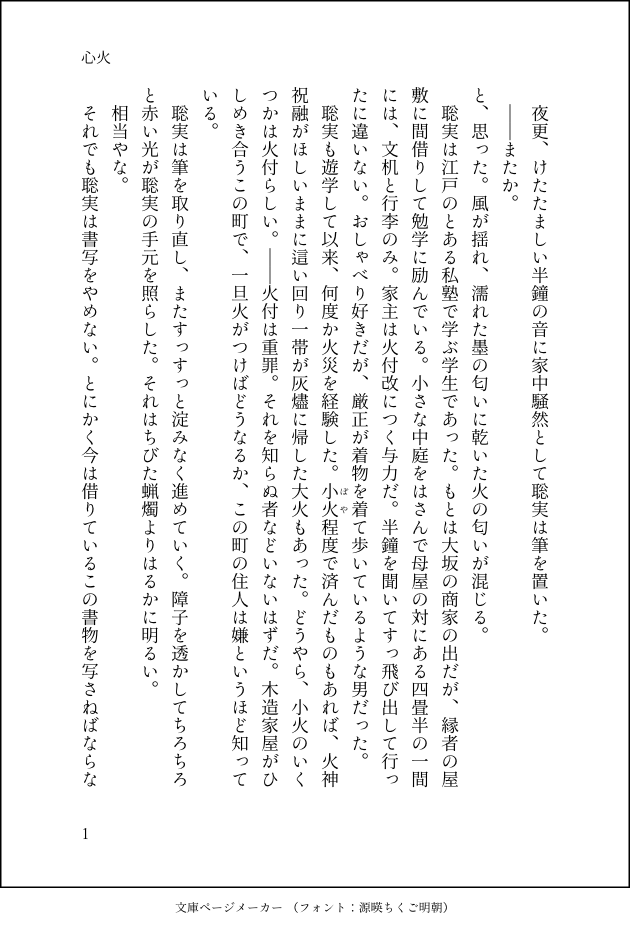 心火
夜更、けたたましい半鐘の音に家中騒然として聡実は筆を置いた。
――またか。
と、思った。風が揺れ、濡れた墨の匂いに乾いた火の匂いが混じる。
聡実は江戸のとある私塾で学ぶ学生であった。もとは大坂の商家の出だが、縁者の屋
敷に間借りして勉学に励んでいる。小さな中庭をはさんで母屋の対にある四畳半の一間
には、文机と行李のみ。家主は火付改につく与力だ。半鐘を聞いてすっ飛び出して行っ
たに違いない。おしゃべり好きだが、厳正が着物を着て歩いているような男だった。
聡実も遊学して以来、何度か火災を経験した。小火程度で済んだものもあれば、火神
ぼや
祝融がほしいままに這い回り一帯が灰燼に帰した大火もあった。どうやら、小火のいく
つかは火付らしい。――火付は重罪。それを知らぬ者などいないはずだ。木造家屋がひ
しめき合うこの町で、一旦火がつけばどうなるか、この町の住人は嫌というほど知って
いる。
聡実は筆を取り直し、またすっすっと淀みなく進めていく。障子を透かしてちろちろ
と赤い光が聡実の手元を照らした。それはちびた蝋燭よりはるかに明るい。
相当やな。
それでも聡実は書写をやめない。とにかく今は借りているこの書物を写さねばならな
1
文庫ページメーカー （フォント：源暎ちくご明朝）